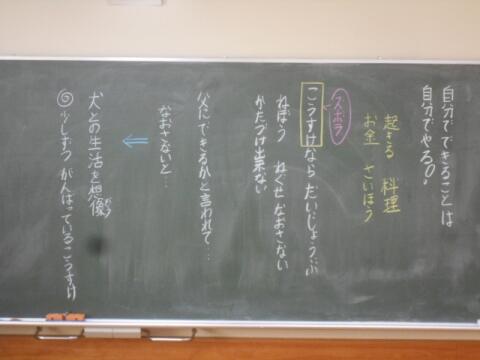 自分でできることは
自分でやる。
起きる　料理
お金　さいほう
ズボラ
こうすけなら だいじょうぶ
ねぼう　ねぐせなおさない
かたづけ出来ない
父にできるかと言われて…
なおさないと…
⇐
犬との生活を想像
◎少しずつ がんばっているこうすけ